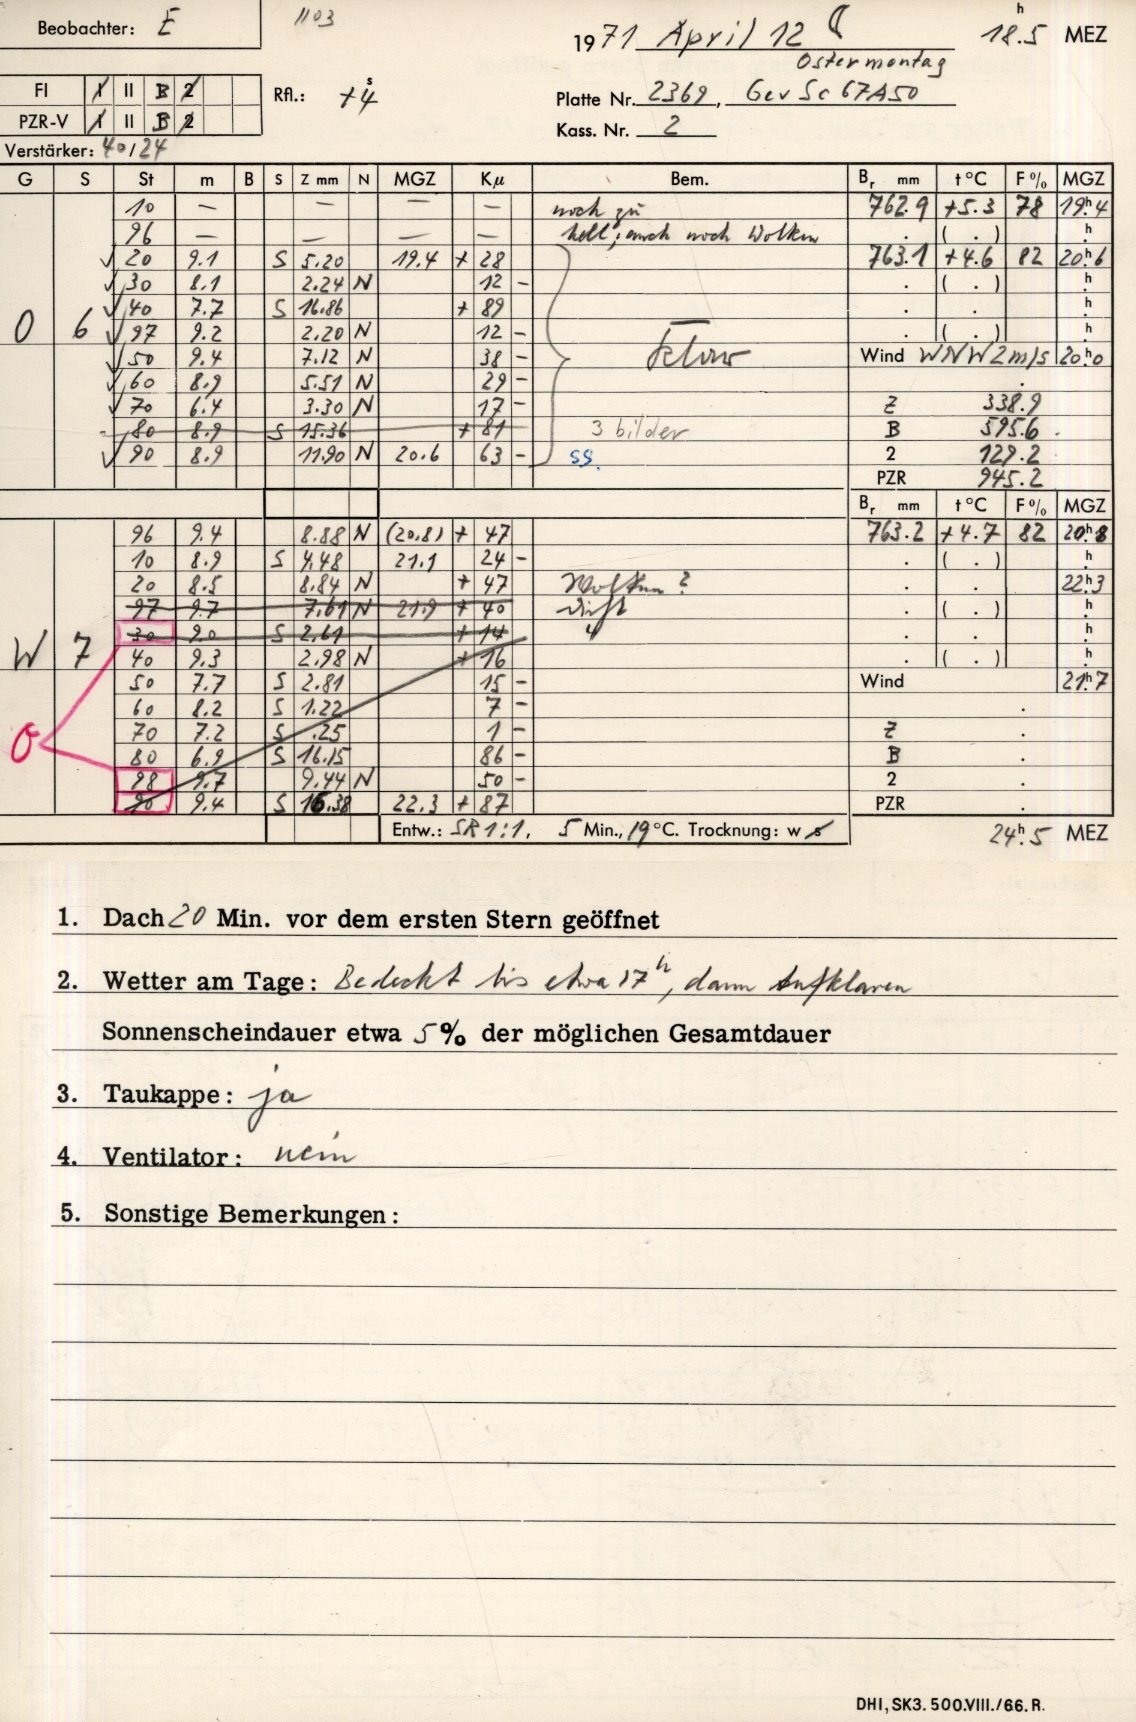 Beobachter: E
1103
1971 April 12 18.5 h MEZ
Ostermontag
FI I II B 2
Rfl.: +4 s
Platte Nr. 2369, Gev Sc 67A50
PZR-V I II B 2
Kass. Nr. 2
Verstärker: 40/24
G S St m B S Z mm N MGZ Kµ Bem. Br mm t °C F % MGZ
10 – – – – noch zu 762.9 +5.3 78 19h.4
96 – – – – hell; auch noch Wolken . ( . ) h.
20 9.1 S 5.20 19.4 + 28 763.1 +4.6 82 20h.6
30 8.1 2.24 N 12 – . ( . ) h.
40 7.7 S 16.86 + 89 . . h.
O 6 97 9.2 2.20 N 12 – klar . ( . ) h.
50 9.4 7.12 N 38 – Wind WNW 2m/s 20h.0
60 8.9 5.51 N 29 – .
70 6.4 3.30 N 17 – Z 338.9
80 8.9 S 15.36 + 81 3 bilder B 595.6
90 8.9 11.90 N 20.6 63 – SS. 2 129.2
PZR 945.2
Br mm t °C F % MGZ
96 9.4 8.88 N (20.8) + 47 763.2 +4.7 82 20h.8
10 8.9 S 4.48 21.1 24 – . ( . ) h.
20 8.5 8.84 N + 47 Wolken? . . 22h.3
97 9.7 7.61 N 21.9 + 40 dicht . ( . ) h.
30 9.0 S 2.61 + 14 " . . h.
W 7 40 9.3 2.98 N + 16 . ( . ) h.
50 7.7 S 2.81 15 – Wind 21h.7
60 8.2 S 1.22 7 – .
O 70 7.2 S .25 1 – Z .
80 6.9 S 16.15 86 – B .
98 9.7 9.44 N 50 – 2 .
90 9.4 S 16.38 22.3 + 87 PZR .
Entw.: SR 1:1, 5 Min., 19 °C. Trocknung: w s 24h.5 MEZ
1. Dach 20 Min. vor dem ersten Stern geöffnet
2. Wetter am Tage: Bedeckt bis etwa 17h, dann Aufklaren
Sonnenscheindauer etwa 5% der möglichen Gesamtdauer
3. Taukappe: ja
4. Ventilator: nein
5. Sonstige Bemerkungen:
DHI, SK3. 500.VIII./66. R.